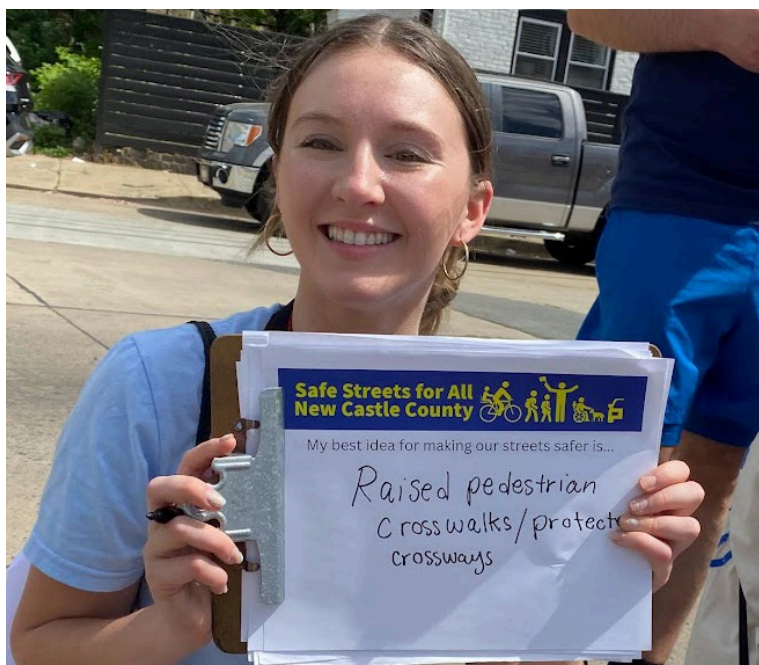 Safe Streets for All
New Castle County
My best idea for making our streets safer is...
Raised pedestrian
crosswalks/protect
crossways